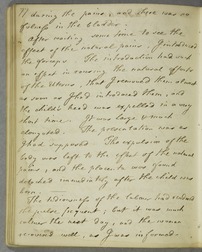 during the pains, and there was no
fulness in the bladder.
After waiting some time to see the
effect of the natural pains, I introduced
the forceps. The introduction had such
an effect in causing the natural efforts
of the uterus, that I removed them almost
as soon as I had introduced them, and
the child's head was expelled in a very
short time. It was large & much
elongated. The presentation was as
I had supposed. The expulsion of the
body was left to the effect of the natural
pains, and the placenta was found
detached immediately after the child was
born.
The tediousness of the labour had rendered
the pulse frequent; but it was much
calmer the next day, and the woman
recovered well, as I was informed.